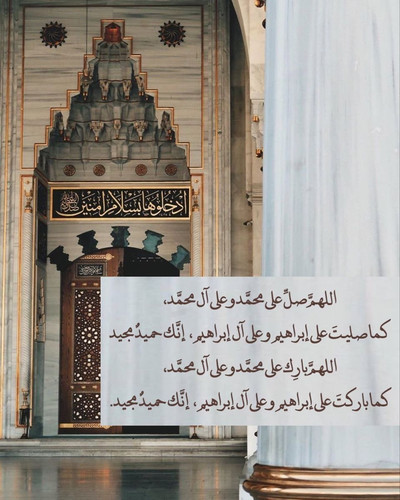 ادخلوها بسلام آمنين
اللهمَّ صلِّ على محمَّد وعلى آل محمَّد،
كما صليتَ على إبراهيم وعلى آل إبراهيم، إنَّك حميدٌ مجيد
اللهمَّ بارِك على محمَّد وعلى آل محمَّد،
كما باركتَ على إبراهيم وعلى آل إبراهيم، إنَّك حميدٌ مجيد.